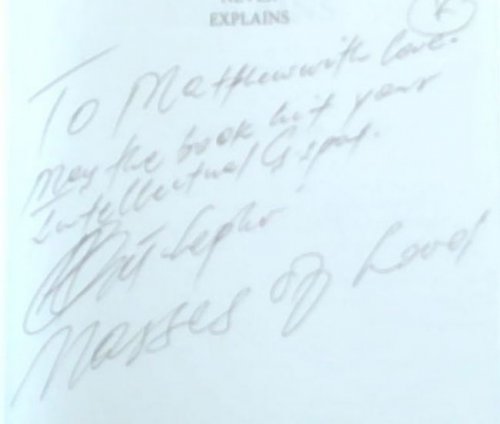 NEVER
EXPLAINS
To Matthew with love.
May the book hit your
Intellectual G spot.
Masses of Love